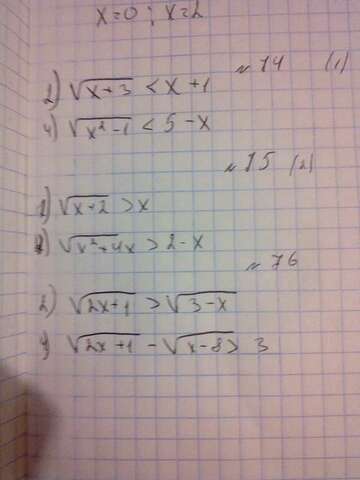 x=0 ; x=2
№ 14 (1)
2) √(x+3) < x+1
4) √(x²-1) < 5-x
№ 15 (2)
1) √(x+2) > x
√(x²+4x) > 2-x
№ 76
2) √(2x+1) > √(3-x)
√(2x+1) - √(x-8) > 3